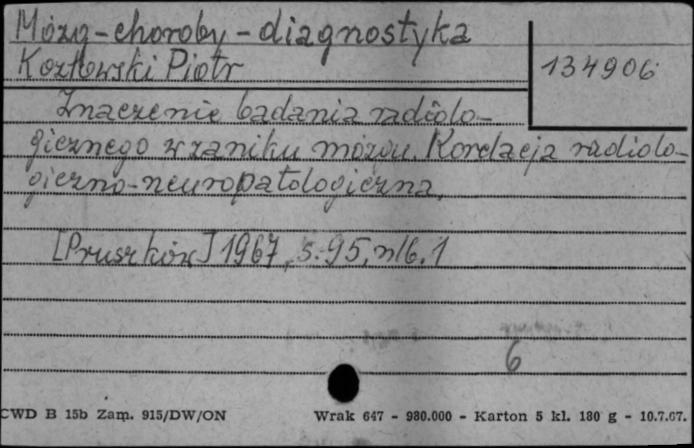 Mózg - choroby - diagnostyka
Kozłowski Piotr
134906
Znaczenie badania radiolo-
gicznego w zaniku mózgu. Korelacja radiolo-
giczno-neuropatologiczna.
[Pruszków] 1967, s. 95, nlb. 1
6
CWD B 15b Zam. 915/DW/ON
Wrak 647 - 980.000 - Karton 5 kl. 180 g - 10.7.67.